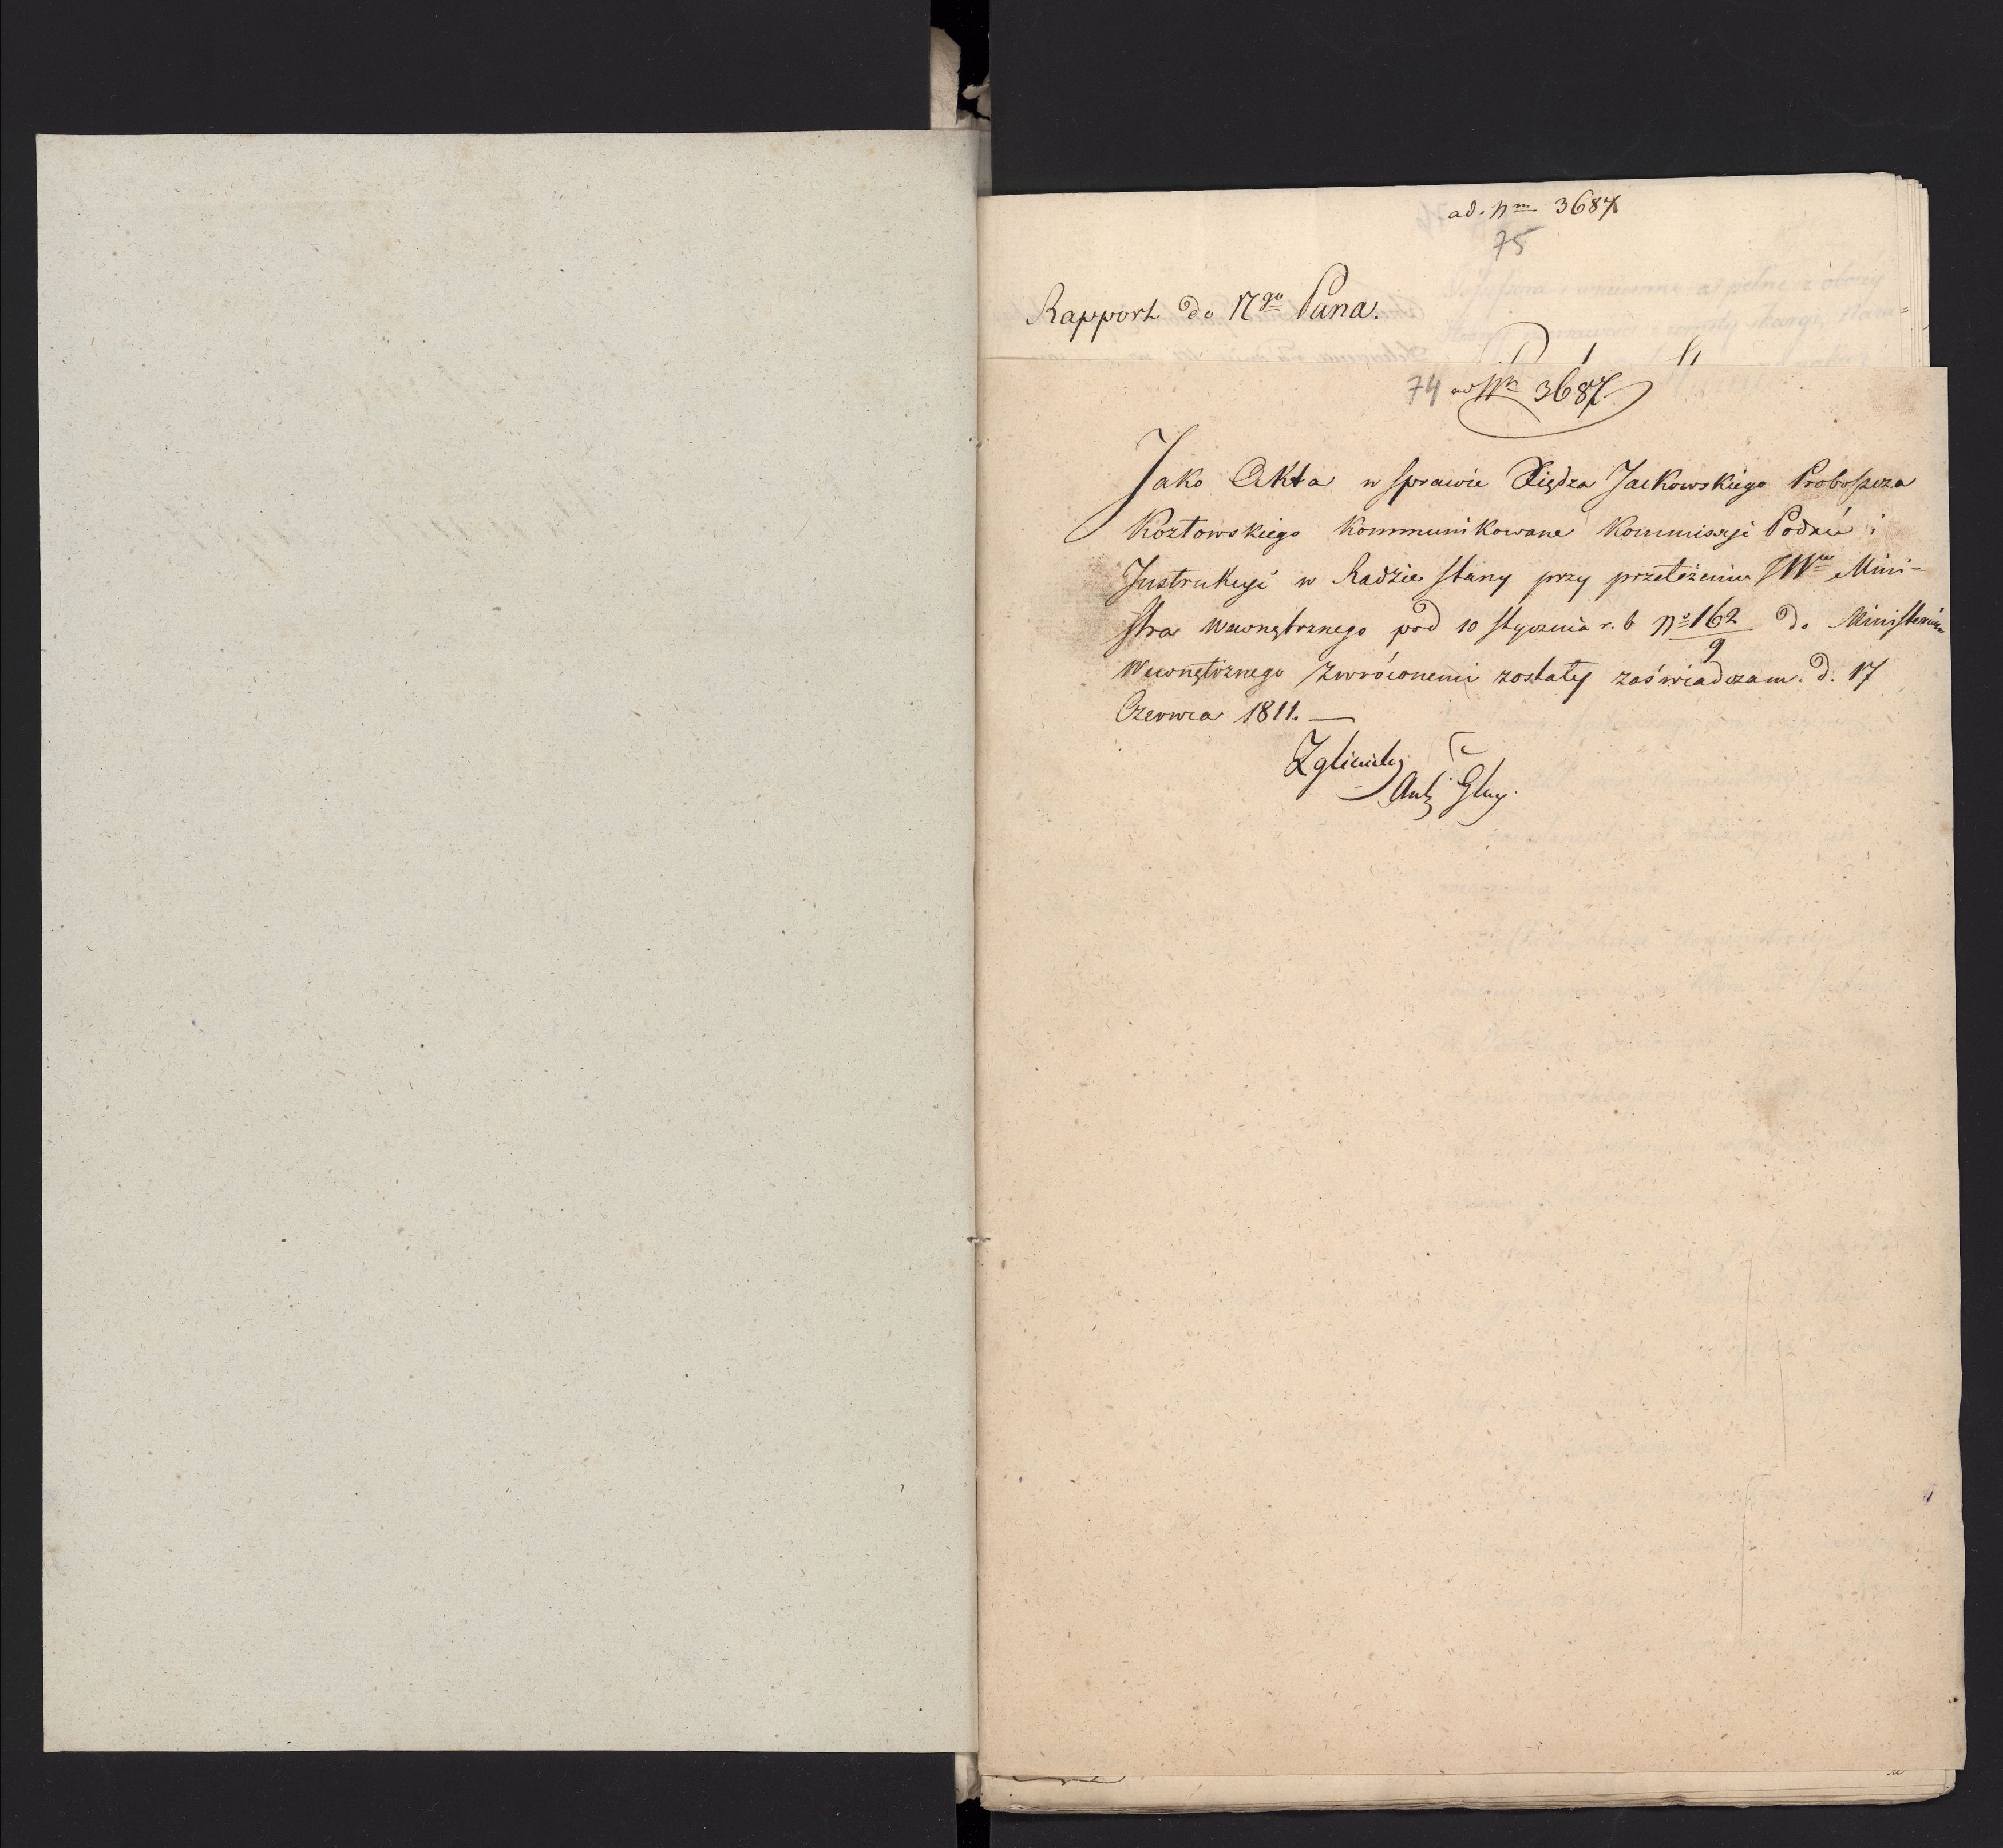 ad. Nm 3687
75
Rapport do Ngo Pana.
74 ad Nr 3687
Jako Akta w sprawie Xiędza Jackowskiego Proboszcza
Kozłowskiego kommunikowane Kommissyi Podań i
Instrukcyi w Radzie stanu przy przełożeniu JWo Mini=
stra Wewnętrznego pod 10 stycznia r. b No 162/9 do Ministerium
Wewnętrznego zwróconemi zostały zaświadczam. d. 17
Czerwca 1811. —